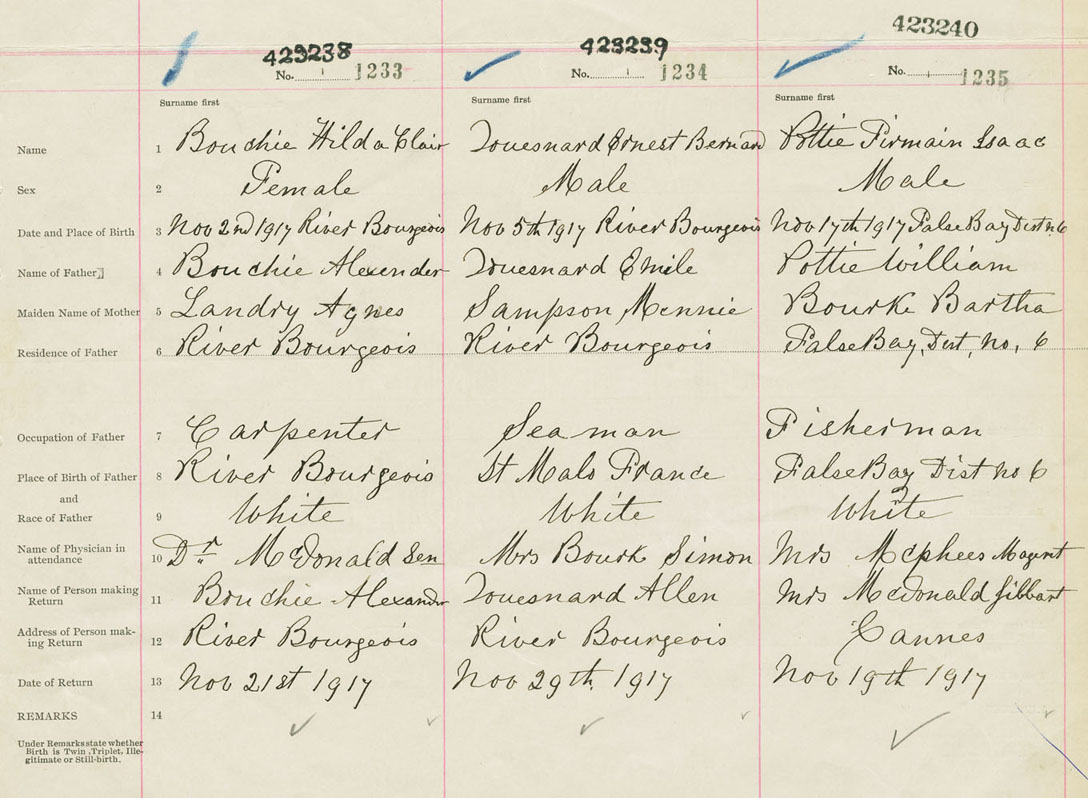 423238 423239 423240
No. 1233 No. 1234 No. 1235
Surname first Surname first Surname first
Name 1 Bouchie Hilda Clair Touesnard Ernest Bernard Pottie Firmain Isaac
Sex 2 Female Male Male
Date and Place of Birth 3 Nov 2nd 1917 River Bourgeois Nov 5th 1917 River Bourgeois Nov 17th 1917 False Bay Dist n. 6
Name of Father 4 Bouchie Alexender Touesnard Emile Pottie William
Maiden Name of Mother 5 Landry Agnes Sampson Mennie Bourke Bartha
Residence of Father 6 River Bourgeois River Bourgeois False Bay, Dist, No, 6
Occupation of Father 7 Carpenter Seaman Fisherman
Place of Birth of Father 8 River Bourgeois St Malo France False Bay Dist no 6
and
Race of Father 9 White White White
Name of Physician in
attendance 10 Dr McDonald Sen Mrs Bourk Simon Mrs Mcphees Magent
Name of Person making
Return 11 Bouchie Alexander Touesnard Allen Mrs McDonald
Address of Person mak-
ing Return 12 River Bourgeois River Bourgeois Cannes
Date of Return 13 Nov 21st 1917 Nov 29th. 1917 Nov 19th 1917
REMARKS 14
Under Remarks state whether
Birth is Twin, Triplet, Ille-
gitimate or Still-birth.